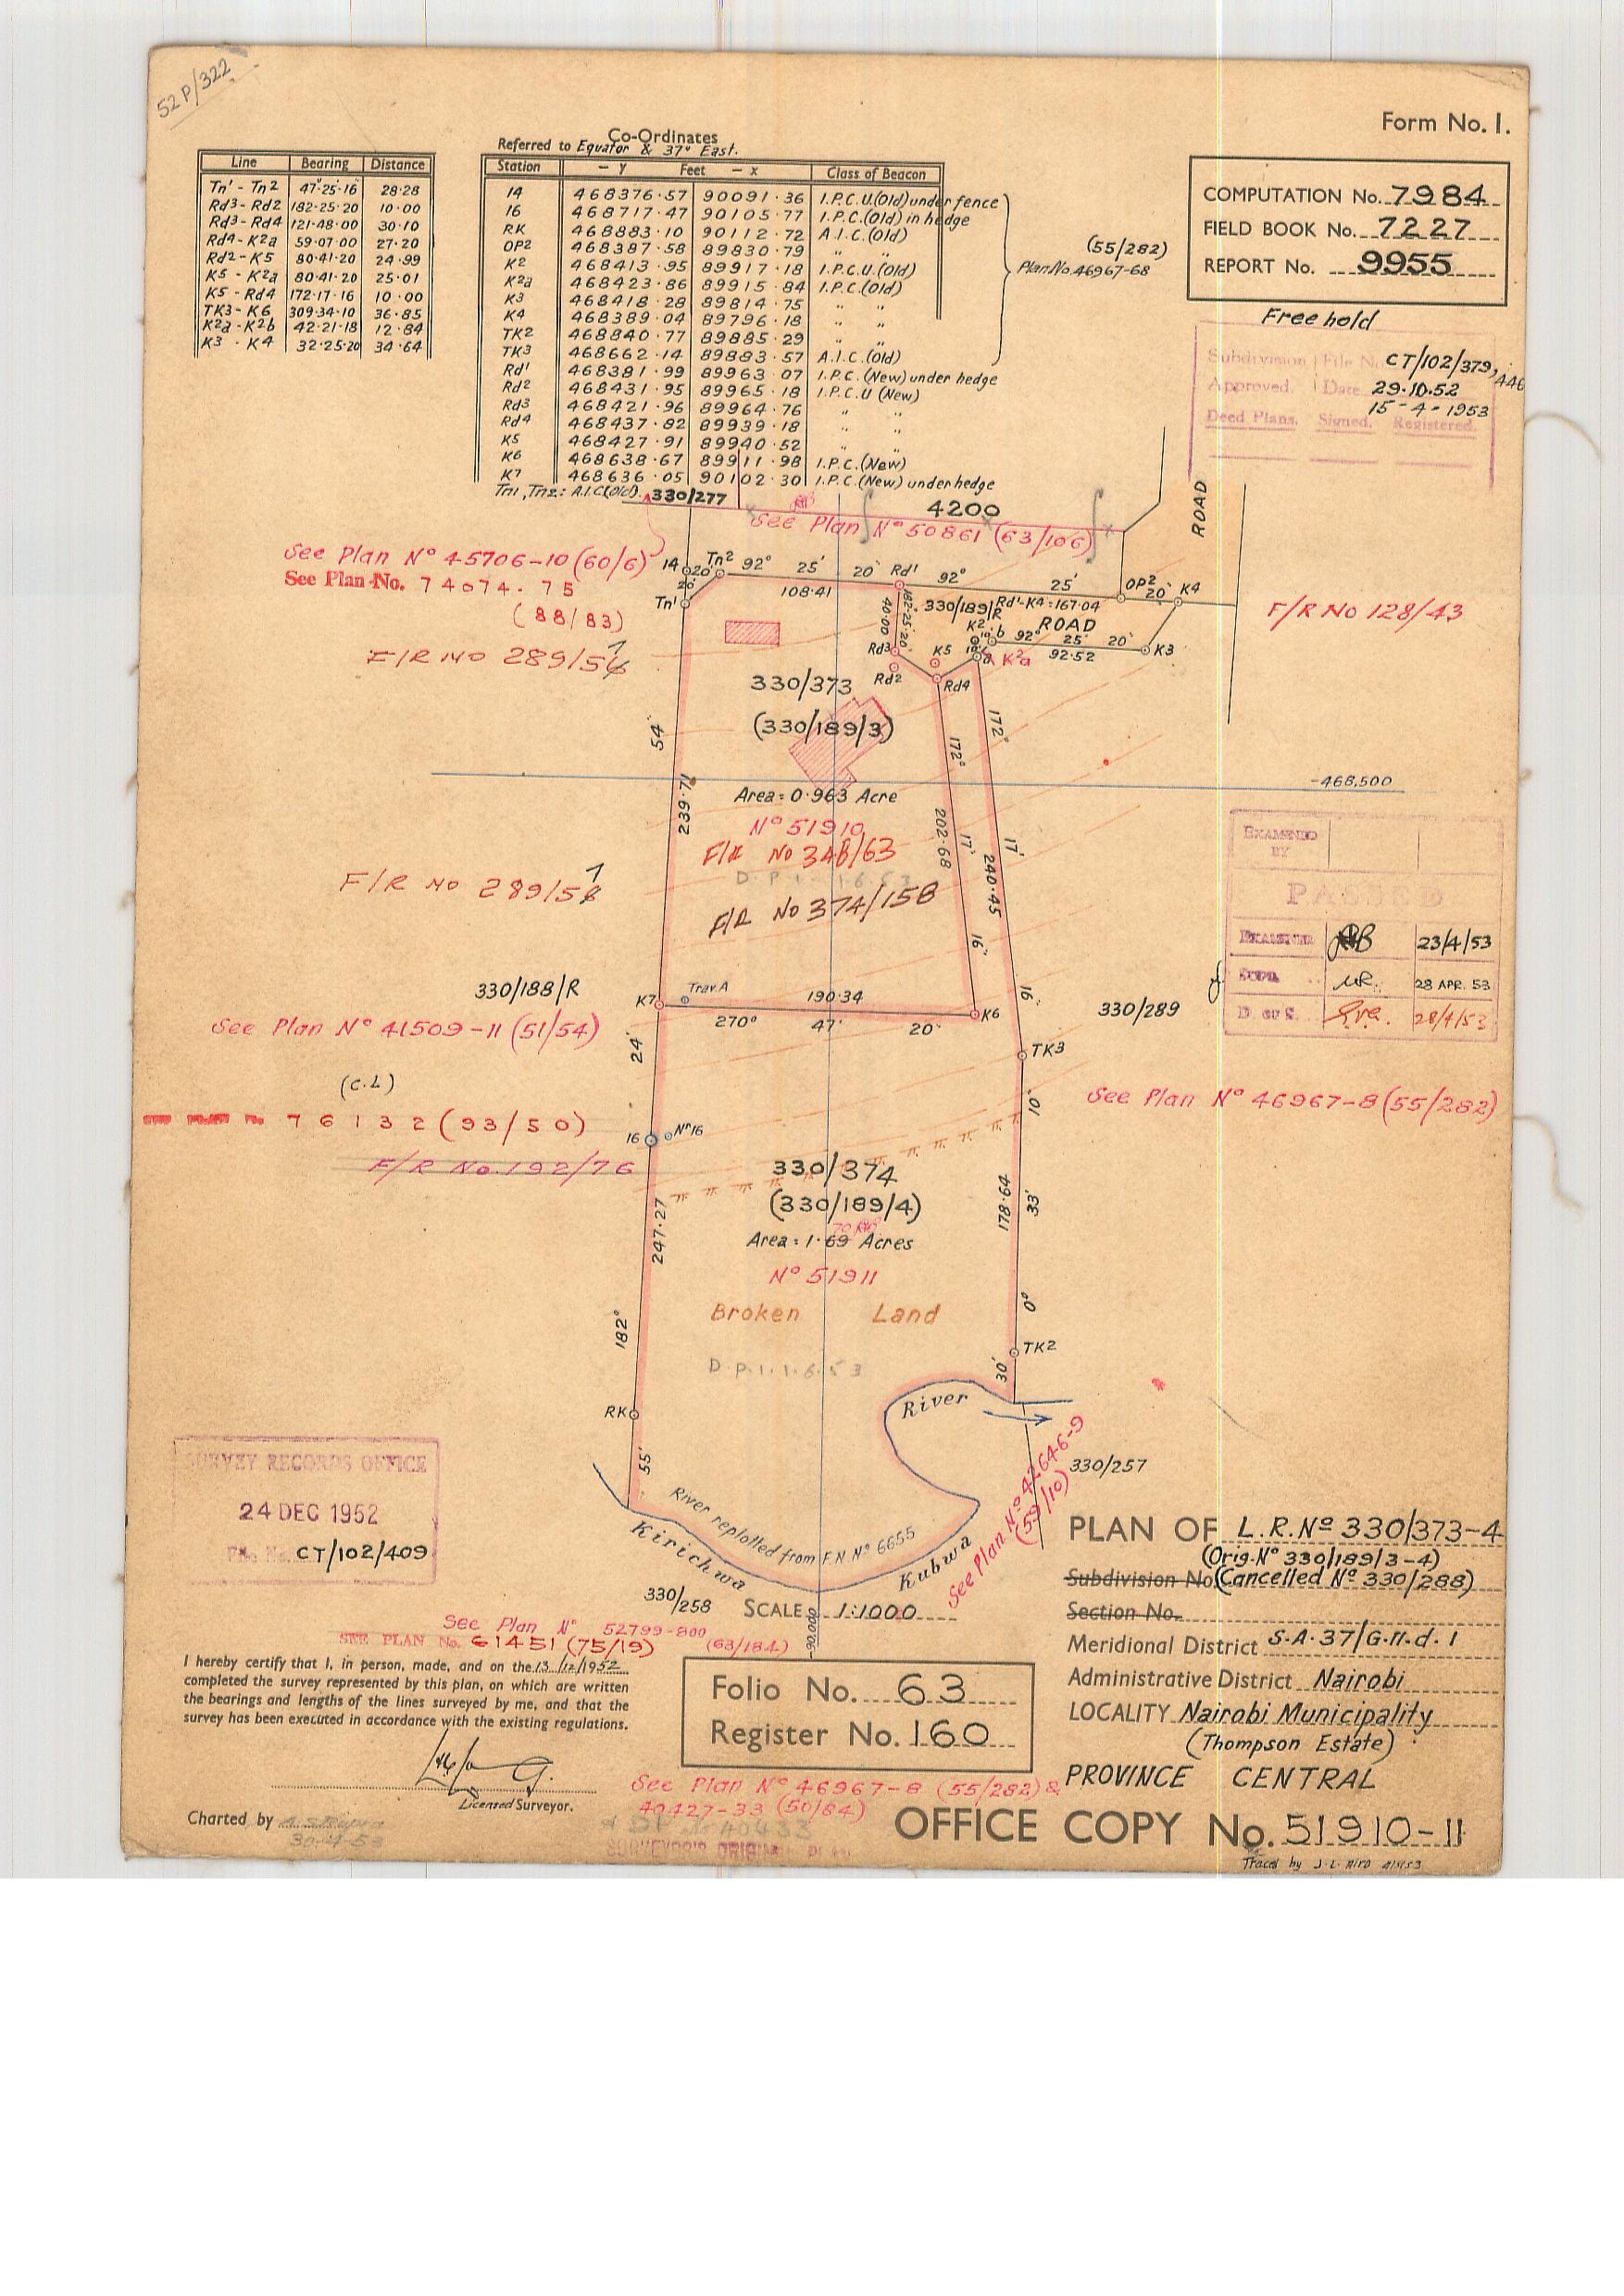 52 P/322
Form No. 1.
Line Bearing Distance
Tn' - Tn2 47·25·16 28·28
Rd3 - Rd2 182·25·20 10·00
Rd3 - Rd4 121·48·00 30·10
Rd4 - K2a 59·07·00 27·20
Rd2 - K5 80·41·20 24·99
K5 - K2a 80·41·20 25·01
K5 - Rd4 172·17·16 10·00
TK3 - K6 309·34·10 36·85
K2a - K2b 42·21·18 12·84
K3 - K4 32·25·20 34·64
Co-Ordinates
Referred to Equator & 37° East.
Station - Y Feet - x Class of Beacon
14 468376·57 90091·36 I.P.C.U.(Old) under fence
16 468717·47 90105·77 I.P.C.(Old) in hedge
RK 468883·10 90112·72 A.I.C.(Old)
OP2 468387·58 89830·79 " "
K2 468413·95 89917·18 I.P.C.U.(Old)
K2a 468423·86 89915·84 I.P.C.(Old)
K3 468418·28 89814·75 " "
K4 468389·04 89796·18 " "
TK2 468840·77 89885·29 " "
TK3 468662·14 89883·57 A.I.C.(Old)
Rd' 468381·99 89963·07 I.P.C.(New) under hedge
Rd2 468431·95 89965·18 I.P.C.U (New)
Rd3 468421·96 89964·76 " "
Rd4 468437·82 89939·18 " "
K5 468427·91 89940·52 " "
K6 468638·67 89911·98 I.P.C.(New)
K7 468636·05 90102·30 I.P.C.(New) under hedge
Tn1, Tn2: A.I.C(Old).
(55/282)
Plan No. 46967-68
COMPUTATION No. 7984
FIELD BOOK No. 7227
REPORT No. 9955
Free hold
Subdivision File No CT/102/379, 446
Approved. Date 29·10·52
15-4-1953
Deed Plans. Signed. Registered.
330/277
4200
See Plan N° 50861 (63/106)
ROAD
See Plan N° 45706-10 (60/6)
See Plan No. 74074·75
(88/83)
F/R NO 289/57
14 20' Tn2 92° 25' 20' Rd' 92° 25' OP2 20' K4
20' Tn' 108·41
330/189/R Rd'-K4=167·04
ROAD
40·00 182·25·20
K2 b 92° 25' 20' K3
92·52
K2a
Rd3 K5
Rd2 Rd4
F/R NO 128/43
330/373
(330/189/3)
54'
239·71
172°
172°
-468,500
Area = 0·963 Acre
N° 51910
F/R No 348/63
D.P.1.1.6.53
F/R No 374/158
202·68
17'
240·45
17'
16'
16'
F/R NO 289/57
EXAMINED BY
PASSED
EXAMINER 23/4/53
SUPD. 28 APR. 53
D. OF S. 28/4/53
330/188/R
K7 Trav. A 190·34 K6
270° 47' 20'
330/289
See Plan N° 41509-11 (51/54)
24'
TK3
(C.L)
SEE PLAN No 76132 (93/50)
See Plan N° 46967-8 (55/282)
10'
16 Nr16
F/R No. 192/76
330/374
(330/189/4)
Area = 1·69 Acres
N° 51911
247·27
178·64
33'
Broken Land
182°
0°
D.P.1.1.6.53
TK2
30'
RK
River
55'
330/257
See Plan N° 42646-9
River replotted from F.N N° 6655
Kirichwa Kubwa
SURVEY RECORDS OFFICE
24 DEC 1952
File No. CT/102/409
330/258
SCALE 1:1000
-90,000
PLAN OF L.R. No 330/373-4
(Orig. N° 330/189/3-4)
Subdivision No. (Cancelled N° 330/288)
Section No.
Meridional District S.A.37/G.11.d.1
Administrative District Nairobi
LOCALITY Nairobi Municipality
(Thompson Estate)
PROVINCE CENTRAL
See Plan N° 52799-800
(63/184)
SEE PLAN No. 61451 (75/19)
I hereby certify that I, in person, made, and on the 13/12/1952
completed the survey represented by this plan, on which are written
the bearings and lengths of the lines surveyed by me, and that the
survey has been executed in accordance with the existing regulations.
Licensed Surveyor.
Folio No. 63
Register No. 160
See Plan N° 46967-8 (55/282) &
40427-33 (50/84)
Charted by
30-4-53
OFFICE COPY No. 51910-11
Traced by